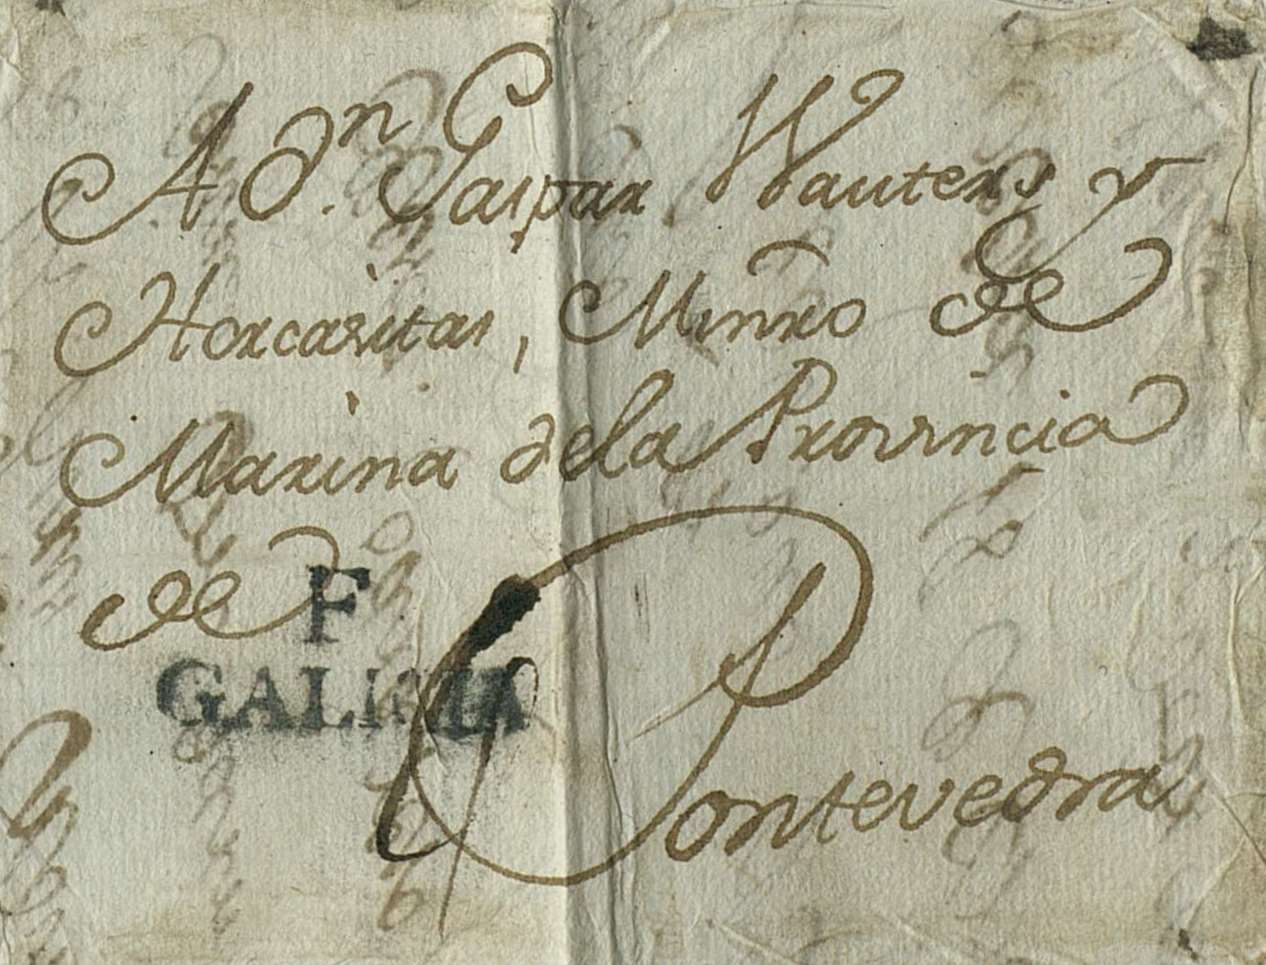 A Dn. Gaspar Wauters y
Horcasitas, Minro de
Marina de la Provincia
de
F
GALICIA
Pontevedra